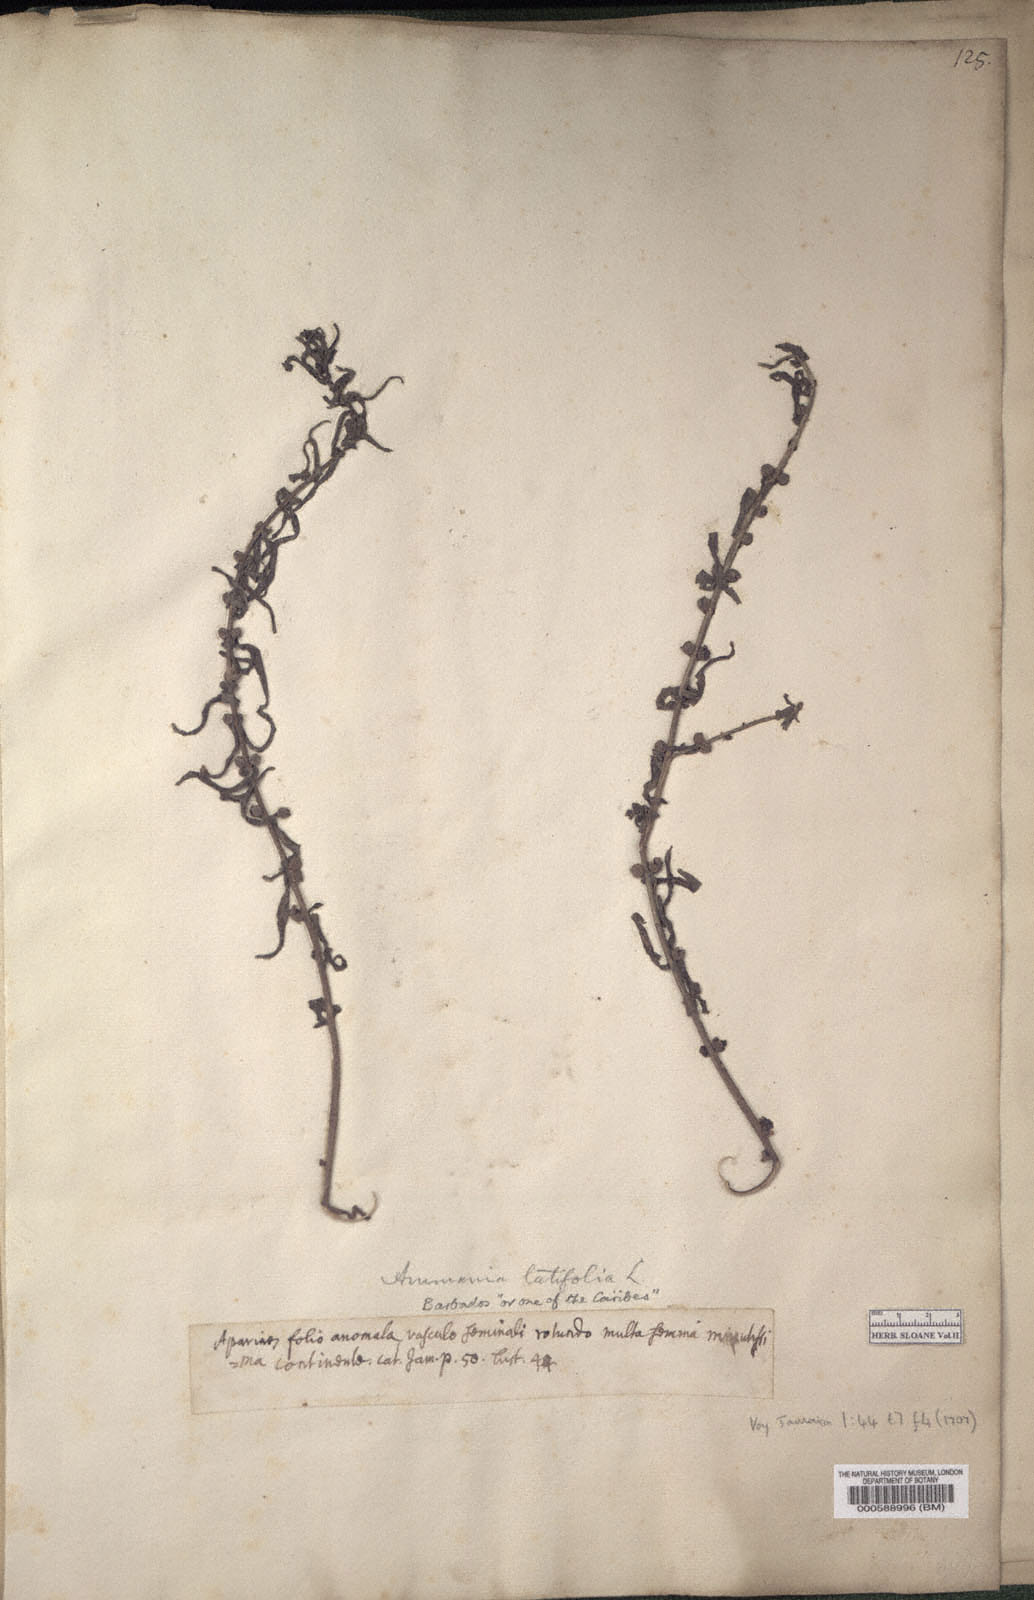 125.
Ammania latifolia L
Barbados "or one of the Caribes"
Aparines folio anomala vasculo seminali rotundo multa semina minutissi
=ma continente. cat. Jam. p. 50. hist. 44
HERB. SLOANE Vol. II
Voy Jamaica 1:44 t.7 f.4 (1707)
THE NATURAL HISTORY MUSEUM, LONDON
DEPARTMENT OF BOTANY
000588996 (BM)